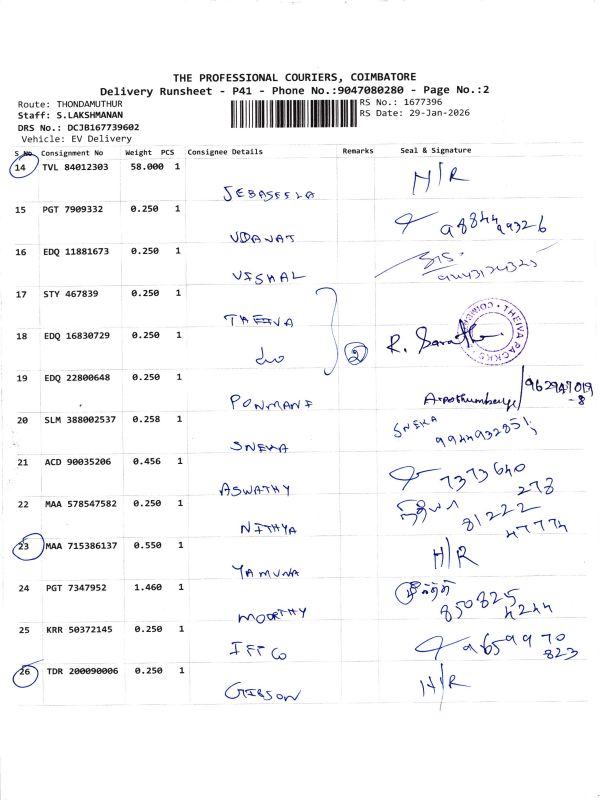 THE PROFESSIONAL COURIERS, COIMBATORE
Delivery Runsheet - P41 - Phone No.:9047080280 - Page No.:2
Route: THONDAMUTHUR
Staff: S.LAKSHMANAN
DRS No.: DCJB167739602
Vehicle: EV Delivery
RS No.: 1677396
RS Date: 29-Jan-2026
S.No Consignment No Weight PCS Consignee Details Remarks Seal & Signature
14 TVL 84012303 58.000 1 H/R
JEBASEELA
15 PGT 7909332 0.250 1
UDAYAT 98844 49326
16 EDQ 11881673 0.250 1
VISHAL
17 STY 467839 0.250 1
THEIVA
THEIVA PACKKS
18 EDQ 16830729 0.250 1
do 2 R.
19 EDQ 22800648 0.250 1
PONMANI
20 SLM 388002537 0.258 1 SNEKA
SNEKA
21 ACD 90035206 0.456 1
ASWATHY 7373640
278
22 MAA 578547582 0.250 1 நித்யா
NITHYA 81222
47774
23 MAA 715386137 0.550 1 H/R
YAMUNA
24 PGT 7347952 1.460 1
MOORTHY 850825
4244
25 KRR 50372145 0.250 1
IFFCO 9659970
823
26 TDR 200090006 0.250 1 H/R
GIBSON